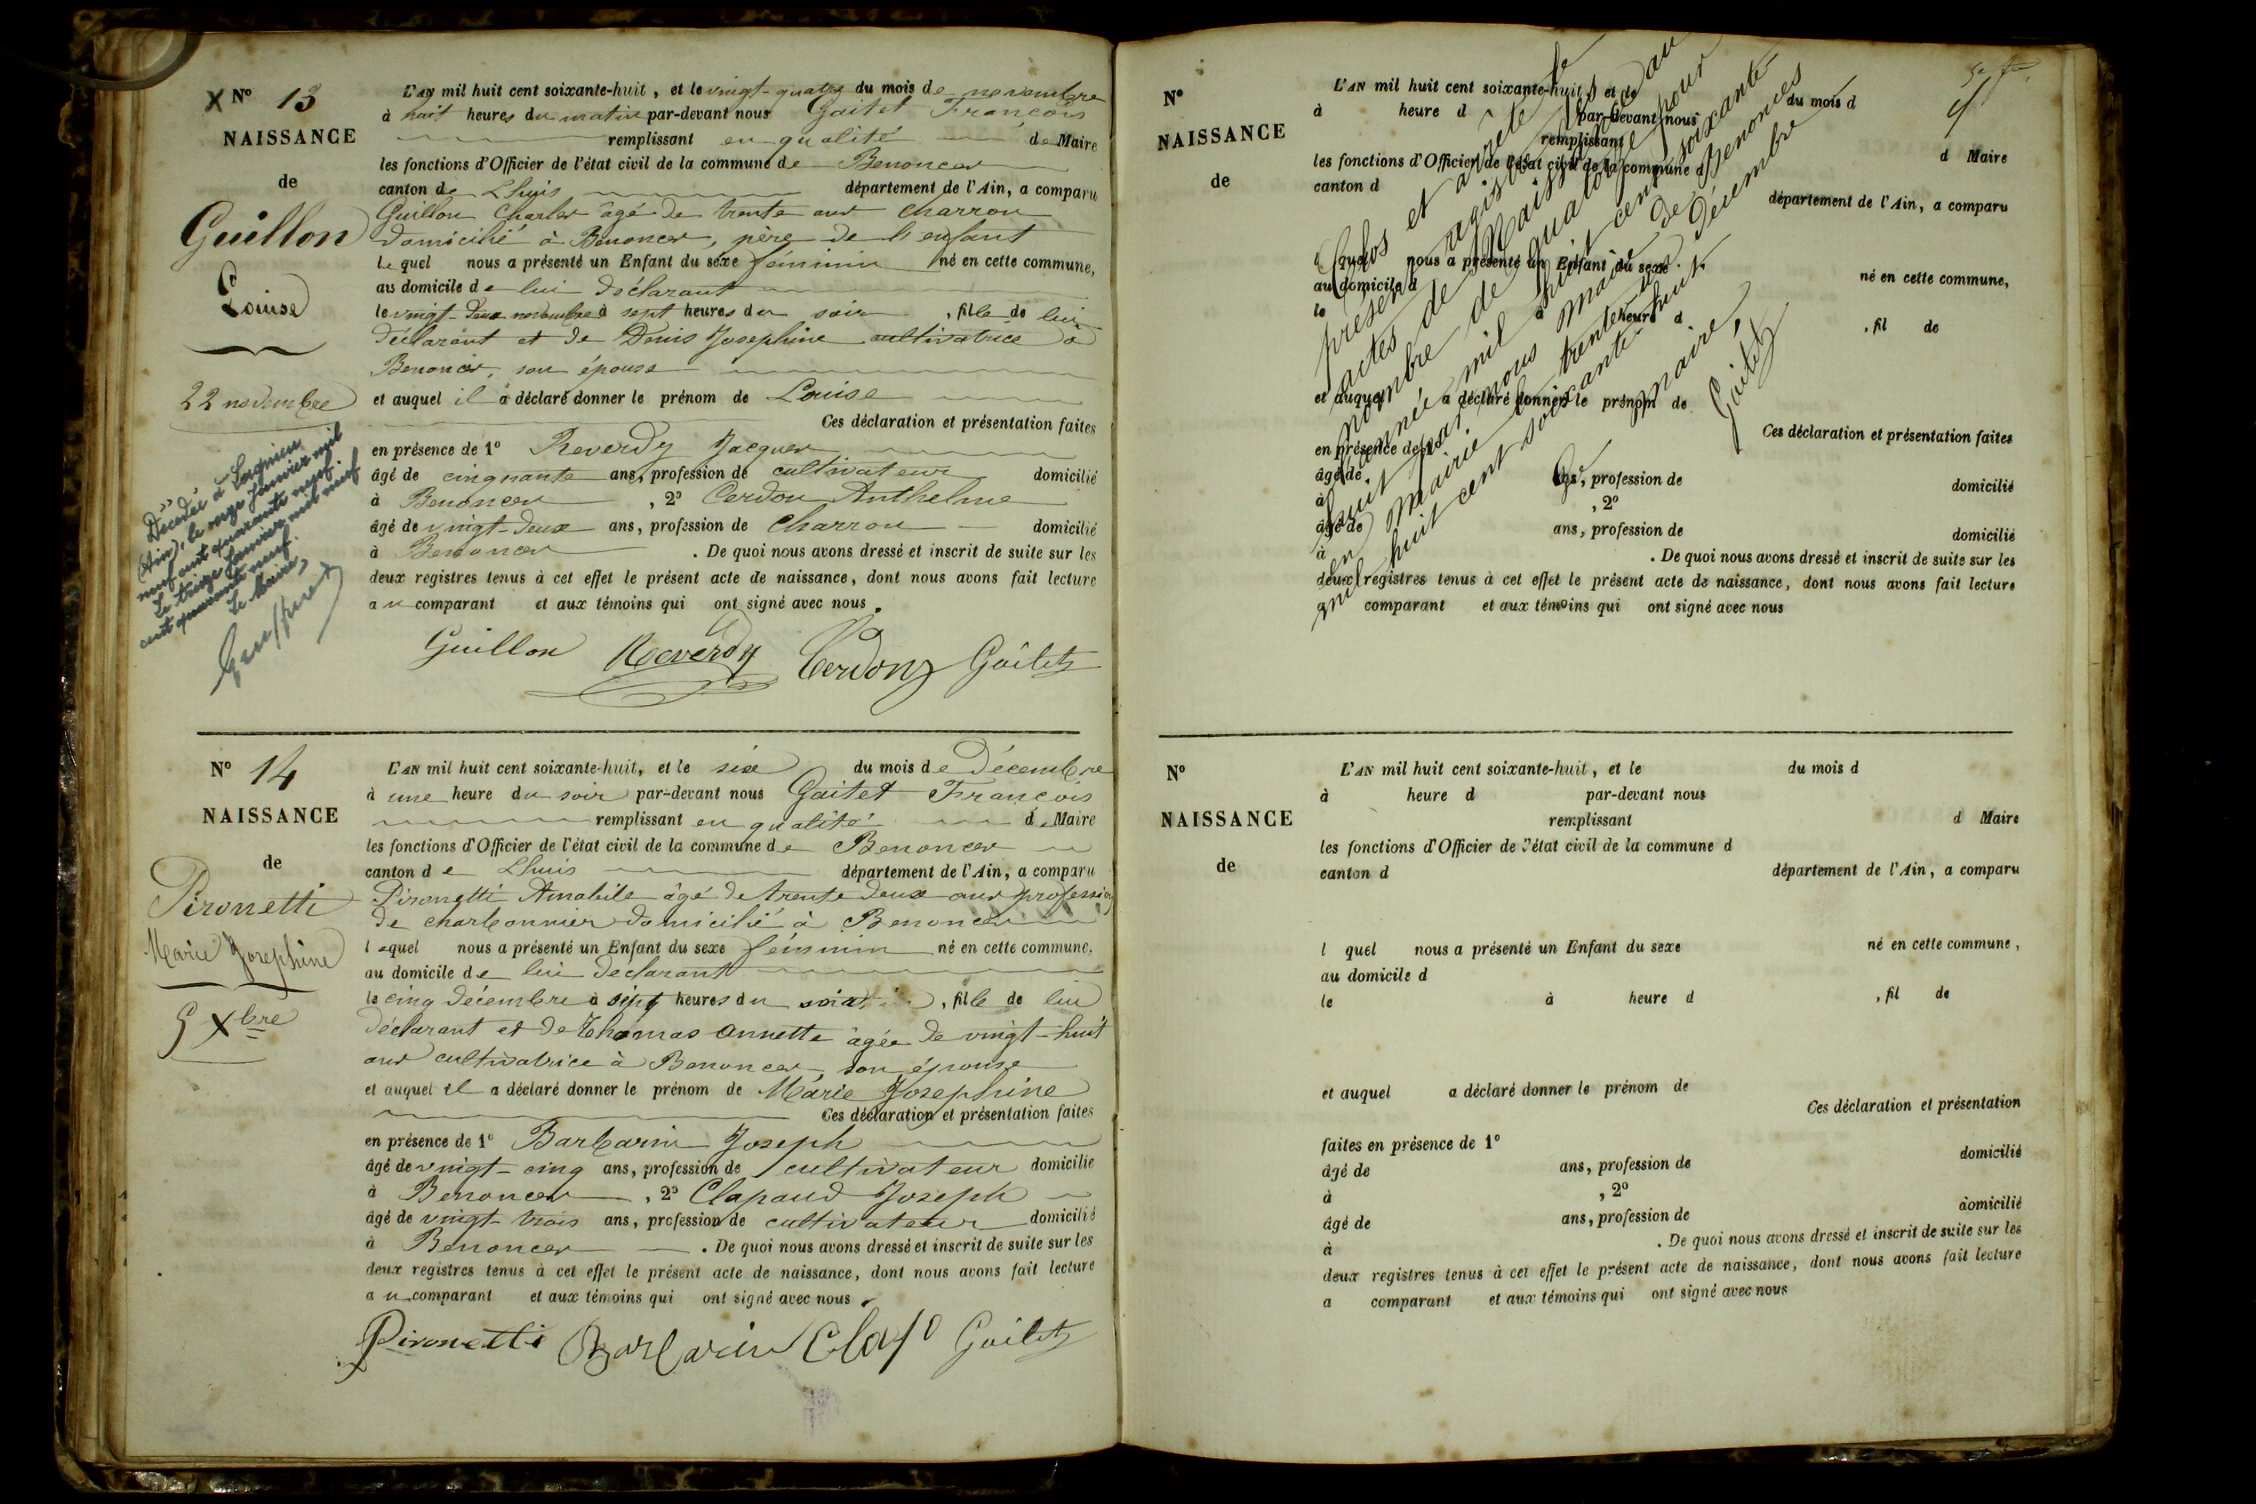 X N° 13
NAISSANCE
de
Guillon
Louise
22 novembre
Décédée à
(Ain), le onze Janvier mil
neuf cent quarante neuf.
Le treize Janvier mil neuf
cent quarante neuf.
Le Maire,
L'AN mil huit cent soixante-huit, et le vingt-quatre du mois de novembre
à huit heures du matin par-devant nous Gaitet François
remplissant en qualité de Maire
les fonctions d'Officier de l'état civil de la commune de Benonces
canton de Lhuis département de l'Ain, a comparu
Guillon Charles âgé de trente ans charron
domicilié à Benonces, père de l'enfant
lequel nous a présenté un Enfant du sexe féminin né en cette commune,
au domicile de lui déclarant
le vingt-deux novembre à sept heures du soir, fille de lui
déclarant et de Denis Josephine cultivatrice à
Benonces, son épouse
et auquel il a déclaré donner le prénom de Louise
Ces déclaration et présentation faites
en présence de 1° Reverdy Jacques
âgé de cinquante ans, profession de cultivateur domicilié
à Benonces, 2° Cerdon Anthelme
âgé de vingt-deux ans, profession de charron domicilié
à Benonces. De quoi nous avons dressé et inscrit de suite sur les
deux registres tenus à cet effet le présent acte de naissance, dont nous avons fait lecture
au comparant et aux témoins qui ont signé avec nous.
Guillon Reverdy Cerdon Gaitet
N° 14
NAISSANCE
de
Pironetti
Marie Josephine
5 Xbre
L'AN mil huit cent soixante-huit, et le six du mois de Décembre
à une heure du soir par-devant nous Gaitet François
remplissant en qualité de Maire
les fonctions d'Officier de l'état civil de la commune de Benonces
canton de Lhuis département de l'Ain, a comparu
Pironetti Amabile âgé de trente deux ans profession
de charbonnier domicilié à Benonces
lequel nous a présenté un Enfant du sexe féminin né en cette commune,
au domicile de lui déclarant
le cinq décembre à sept heures du, fille de lui
déclarant et de Thomas annette âgée de vingt-huit
ans cultivatrice à Benonces, son épouse
et auquel il a déclaré donner le prénom de Marie Josephine
Ces déclaration et présentation faites
en présence de 1° Barbarin Joseph
âgé de vingt-cinq ans, profession de cultivateur domicilié
à Benonces, 2° Clapaud Joseph
âgé de vingt-trois ans, profession de cultivateur domicilié
à Benonces. De quoi nous avons dressé et inscrit de suite sur les
deux registres tenus à cet effet le présent acte de naissance, dont nous avons fait lecture
au comparant et aux témoins qui ont signé avec nous.
Pironetti Barbarin Clap Gaitet
N°
NAISSANCE
de
L'AN mil huit cent soixante-huit, et le du mois d
à heure d par-devant nous
remplissant d Maire
les fonctions d'Officier de l'état civil de la commune d
canton d département de l'Ain, a comparu
l quel nous a présenté un Enfant du sexe né en cette commune,
au domicile d
le à heure d, fil de
et auquel a déclaré donner le prénom de
Ces déclaration et présentation faites
en présence de 1°
âgé de ans, profession de domicilié
à, 2°
âgé de ans, profession de domicilié
à. De quoi nous avons dressé et inscrit de suite sur les
deux registres tenus à cet effet le présent acte de naissance, dont nous avons fait lecture
a comparant et aux témoins qui ont signé avec nous
Clos et arrêté le
présent registre des
actes de Naissance au
nombre de quatorze pour
l'année mil huit cent soixante
huit par nous maire de Benonces
en mairie le trente-un décembre
mil huit cent soixante huit.
Le maire,
Gaitet
N°
NAISSANCE
de
L'AN mil huit cent soixante-huit, et le du mois d
à heure d par-devant nous
remplissant d Maire
les fonctions d'Officier de l'état civil de la commune d
canton d département de l'Ain, a comparu
l quel nous a présenté un Enfant du sexe né en cette commune,
au domicile d
le à heure d, fil de
et auquel a déclaré donner le prénom de
Ces déclaration et présentation
faites en présence de 1°
âgé de ans, profession de domicilié
à, 2°
âgé de ans, profession de domicilié
à. De quoi nous avons dressé et inscrit de suite sur les
deux registres tenus à cet effet le présent acte de naissance, dont nous avons fait lecture
a comparant et aux témoins qui ont signé avec nous